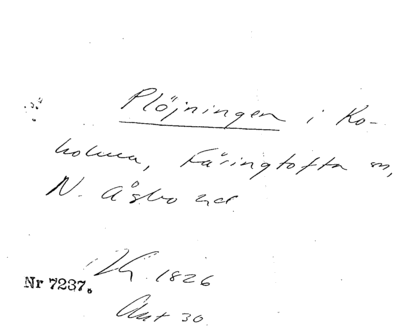 Plöjningen i Ko-
holma, Färingtofta sn,
N. Åsbo hd
1826
Nr 7237.
Ant 30